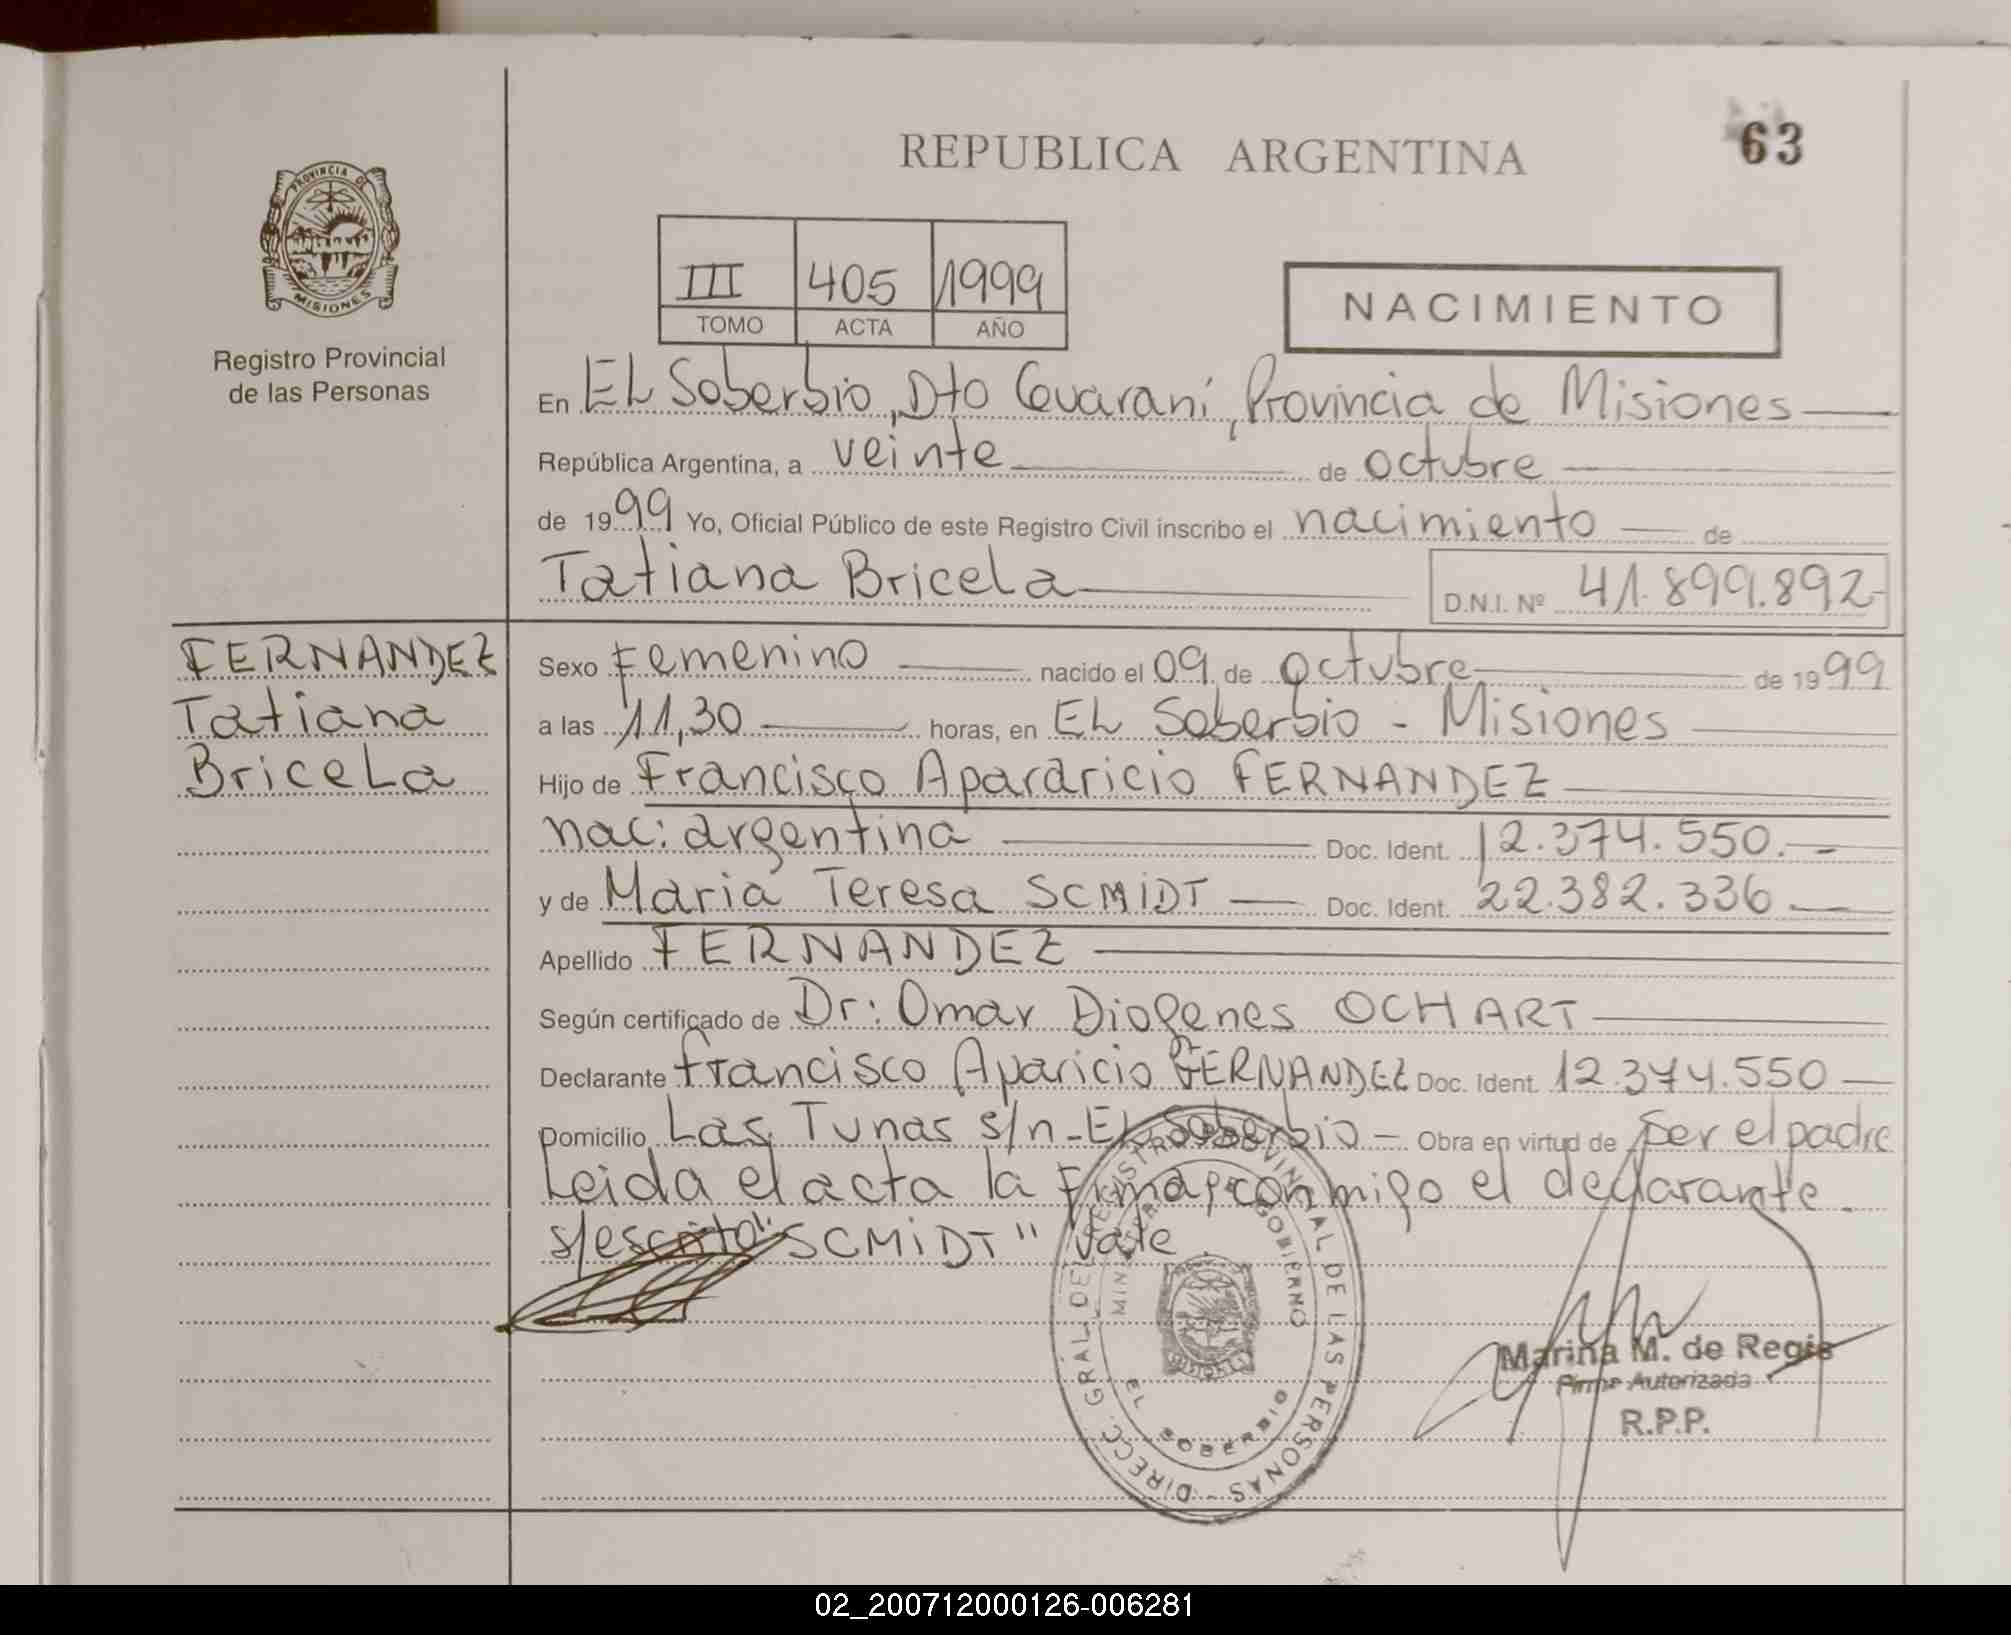 REPUBLICA ARGENTINA
63
PROVINCIA DE
MISIONES
Registro Provincial
de las Personas
III 405 1999
TOMO ACTA AÑO
NACIMIENTO
En EL Soberbio, Dto Guaraní, Provincia de Misiones
República Argentina, a veinte de octubre
de 1999 Yo, Oficial Público de este Registro Civil inscribo el nacimiento de
Tatiana Bricela D.N.I. Nº 41.899.892
FERNANDEZ
Tatiana
BriceLa
Sexo Femenino nacido el 09 de octubre de 1999
a las 11,30 horas, en EL Soberbio - Misiones
Hijo de Francisco Apararicio FERNANDEZ
nac: argentina Doc. Ident. 12.374.550.-
y de Maria Teresa SCMIDT Doc. Ident. 22.382.336
Apellido FERNANDEZ
Según certificado de Dr: Omar Diogenes OCHART
Declarante Francisco Aparicio FERNANDEZ Doc. Ident. 12.374.550
Domicilio Las Tunas s/n - EL Soberbio - Obra en virtud de ser el padre
Leida el acta la Firma conmigo el declarante.
s/escrito "SCMIDT" Vale
DIRECC. GRAL. DEL REGISTRO PROVINCIAL DE LAS PERSONAS -
MINISTERIO DE GOBIERNO
EL SOBERBIO
Marina M. de Regis
Firma Autorizada
R.P.P.
02_200712000126-006281